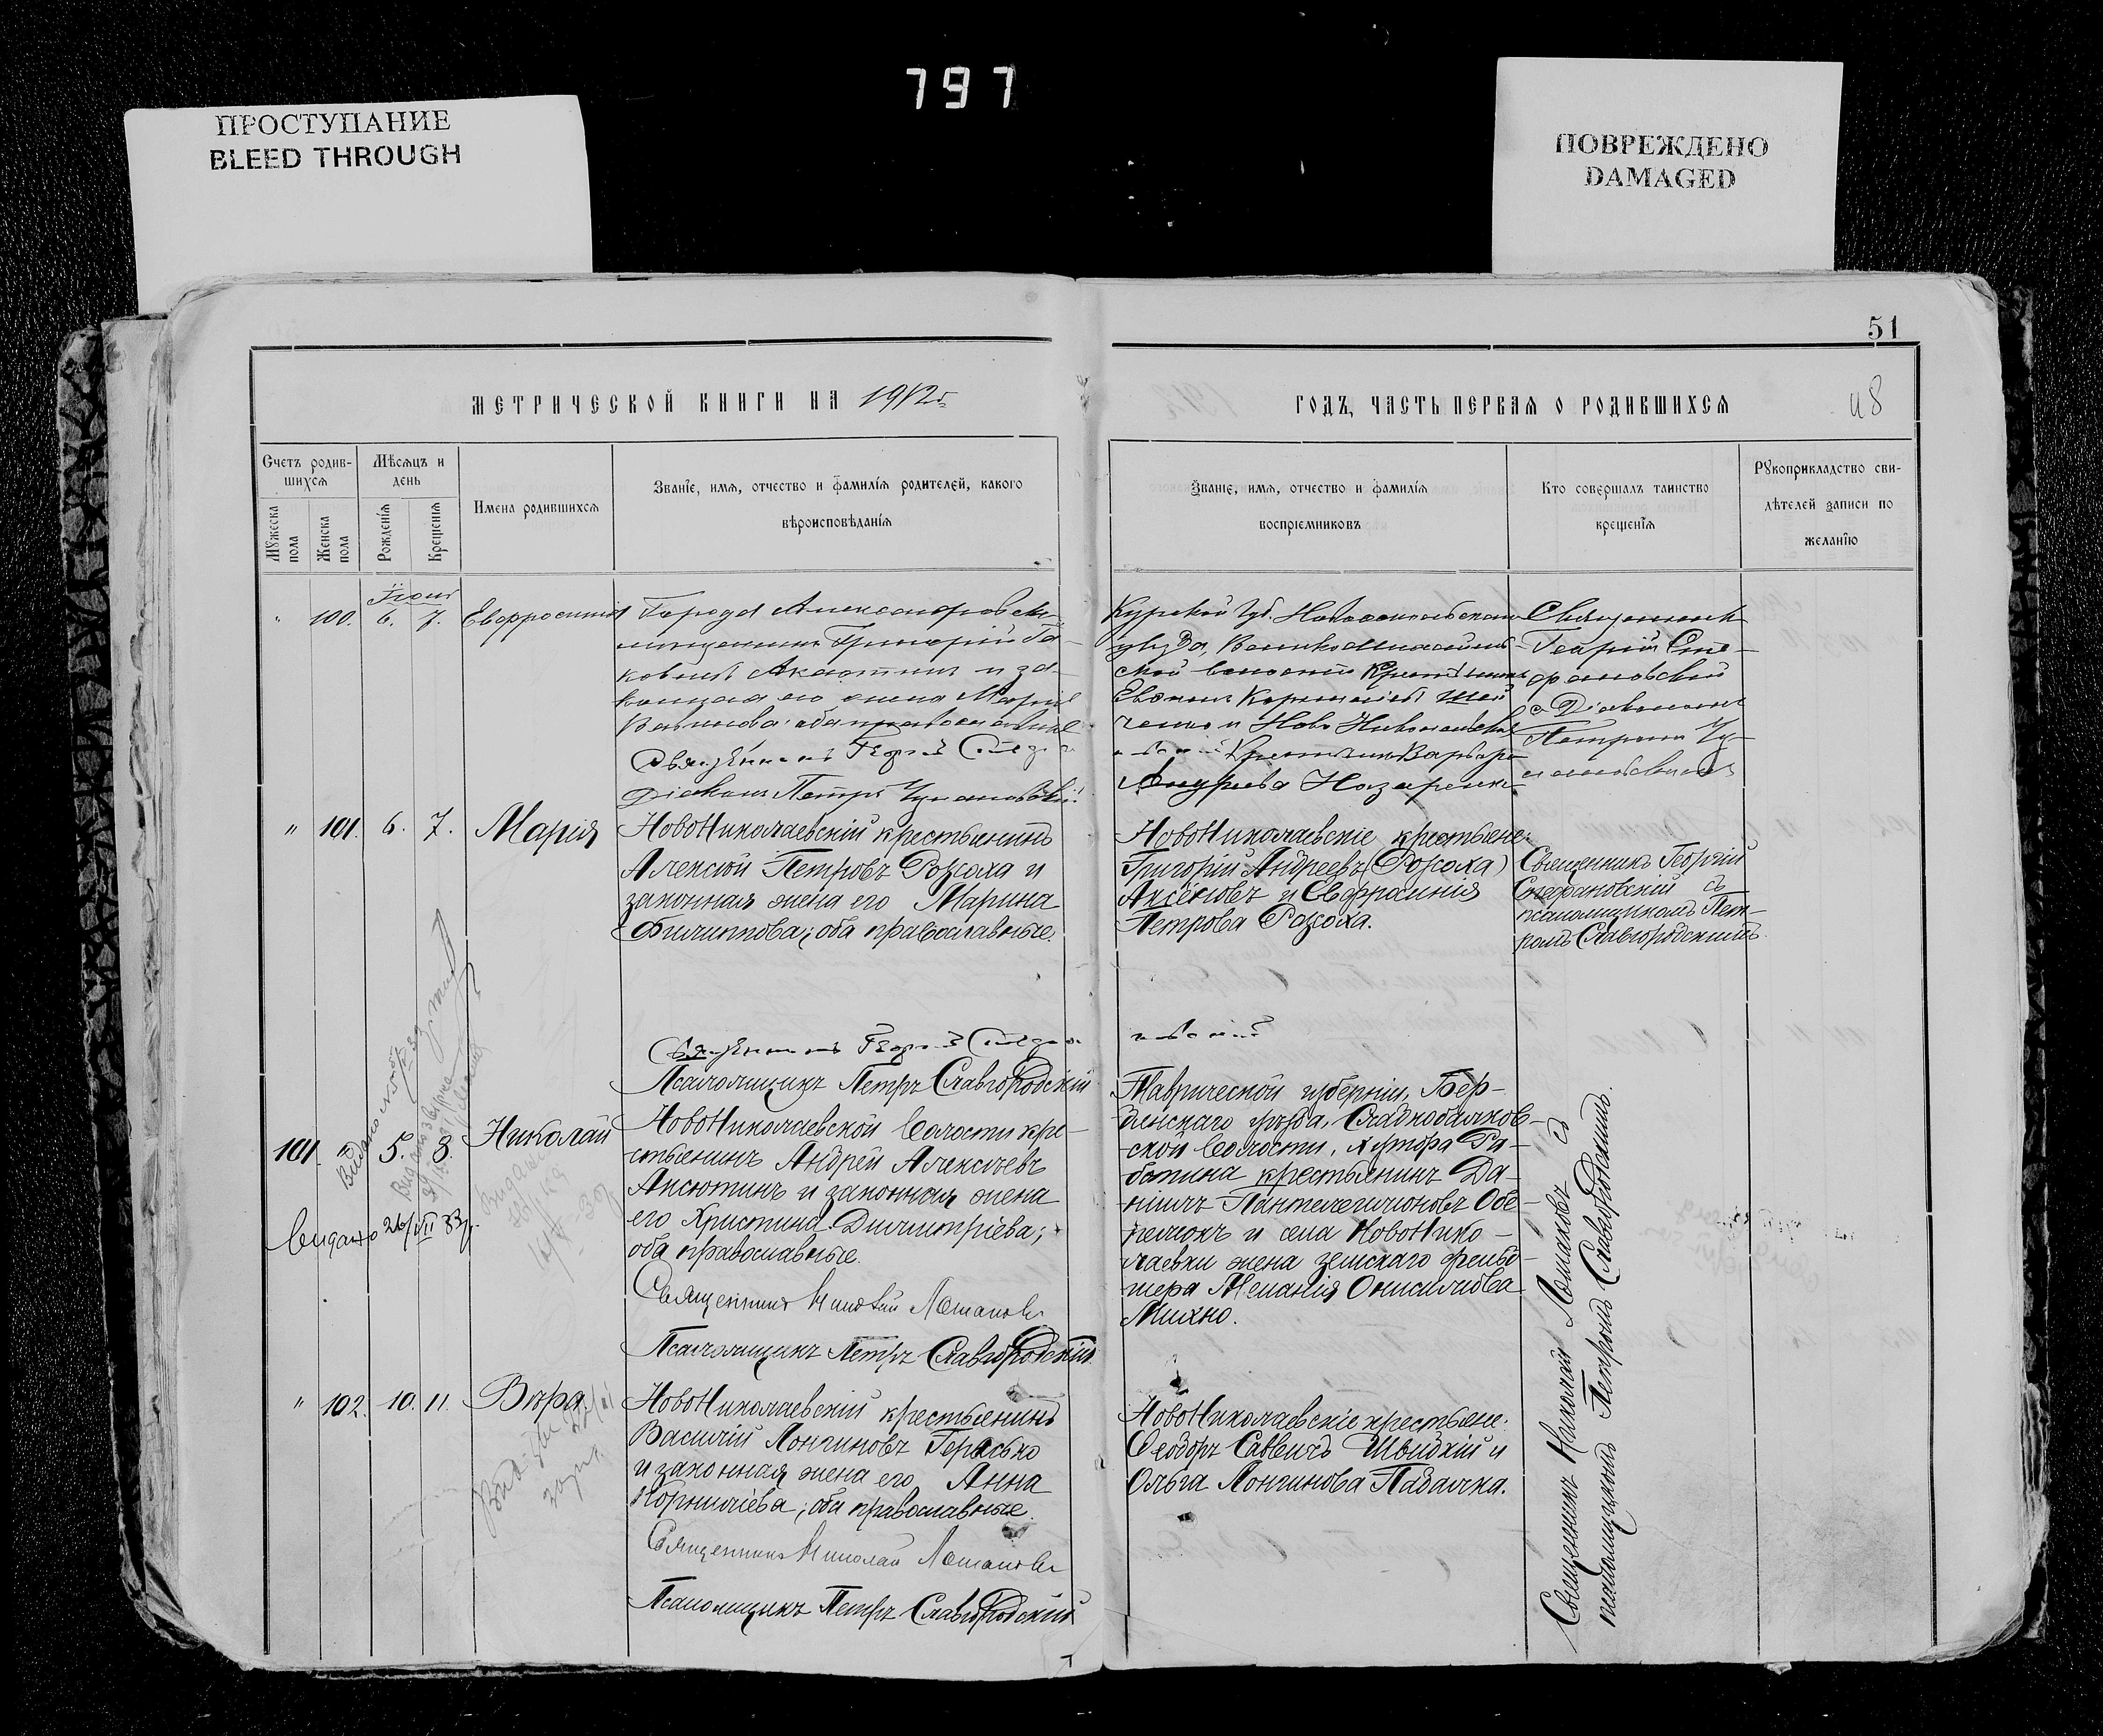 797
ПРОСТУПАНИЕ
BLEED THROUGH
ПОВРЕЖДЕНО
DAMAGED
51
МЕТРИЧЕСКОЙ КНИГИ НА 1912 г.
ГОДЪ, ЧАСТЬ ПЕРВАЯ О РОДИВШИХСЯ
48
Счетъ родив-
шихся
Мѣсяцъ и
день
Мужеска
пола
Женска
пола
Рожденія
Крещенія
Имена родившихся
Званіе, имя, отчество и фамилія родителей, какого
вѣроисповѣданія
Званіе, имя, отчество и фамилія
воспріемниковъ
Кто совершалъ таинство
крещенія
Рукоприкладство сви-
дѣтелей записи по
желанію
" 100. 6. 7. Евфросинія
Города Александровска
мѣщанинъ Григорій Яковлевъ
и за-
конная его жена Марія
оба православные
Священникъ Георгій Стефа
Діаконъ Петръ
Курской губ. Новооскольскаго
уѣзда, Велико
ской волости крестьянинъ
Корнилій
и Ново Николаевская
Варвара
Назаренко
Священникъ
Георгій Сте-
фановскій
съ Діакономъ
Петромъ
" 101. 6. 7. Марія
НовоНиколаевскій крестьянинъ
Алексѣй Петровъ Розсоха и
законная жена его Марина
Филиппова; оба православные.
Священникъ Георгій Стефа
новскій
Псаломщикъ Петръ Славгородскій
НовоНиколаевскіе крестьяне:
Григорій Андреевъ (Розсоха)
Аксёновъ и Евфросинія
Петрова Розсоха.
Священникъ Георгій
Стефановскій съ
псаломщикомъ Пет-
ромъ Славгородскимъ.
101. " 5. 8. Николай
Видано 26/VII 33 р.
НовоНиколаевской волости кре-
стьянинъ Андрей Алексѣевъ
Аксютинъ и законная жена
его Христина Димитріева;
оба православные.
Священникъ Николай Ломаковъ
Псаломщикъ Петръ Славгородскій
Таврической губерніи, Бер-
дянскаго уѣзда, Сладкобалков-
ской волости, хутора Ра-
ботина крестьянинъ Да-
ніилъ Пантелеимоновъ Обе-
и села НовоНико-
лаевки жена земскаго фельд-
шера Меланія Онисимова
Михно.
Священникъ Николай Ломаковъ съ
псаломщикомъ Петромъ Славгородскимъ.
" 102. 10. 11. Вѣра
НовоНиколаевскій крестьянинъ
Василій Лонгиновъ Герасько
и законная жена его Анна
Корниліева; оба православные.
Священникъ Николай Ломаковъ
Псаломщикъ Петръ Славгородскій
НовоНиколаевскіе крестьяне:
Ѳеодоръ Саввичъ Швидкій и
Ольга Лонгинова Падалка.